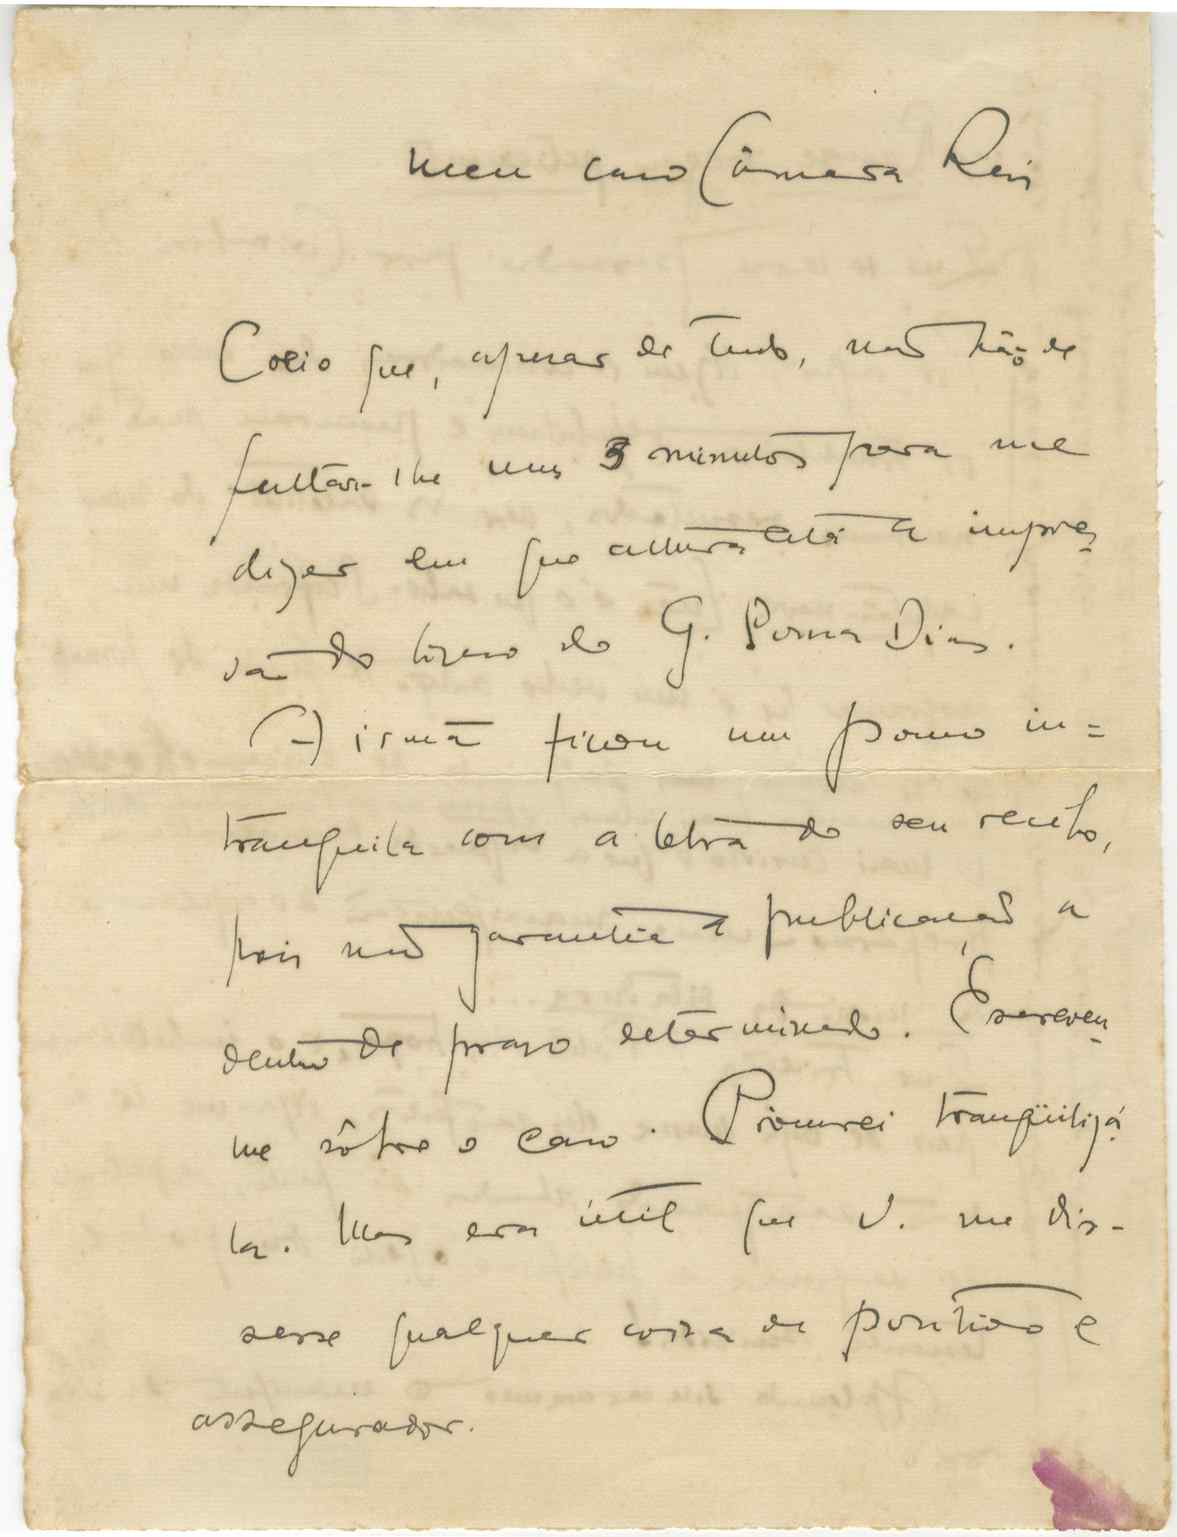 Meu caro Câmara Reis
Creio que, apesar de tudo, não hão de
faltar-lhe uns 3 minutos para me
dizer em que altura está a impres-
são do livro do G. Poma Dias.
A irmã ficou um pouco in=
tranquila com a letra do seu recibo,
pois não garantia a publicação a
dentro de prazo determinado. Escreveu-
me sôbre o caso. Procurei tranqüilizá-
la. Mas era útil que V. me dis-
sesse qualquer coisa de positivo e
assegurador.